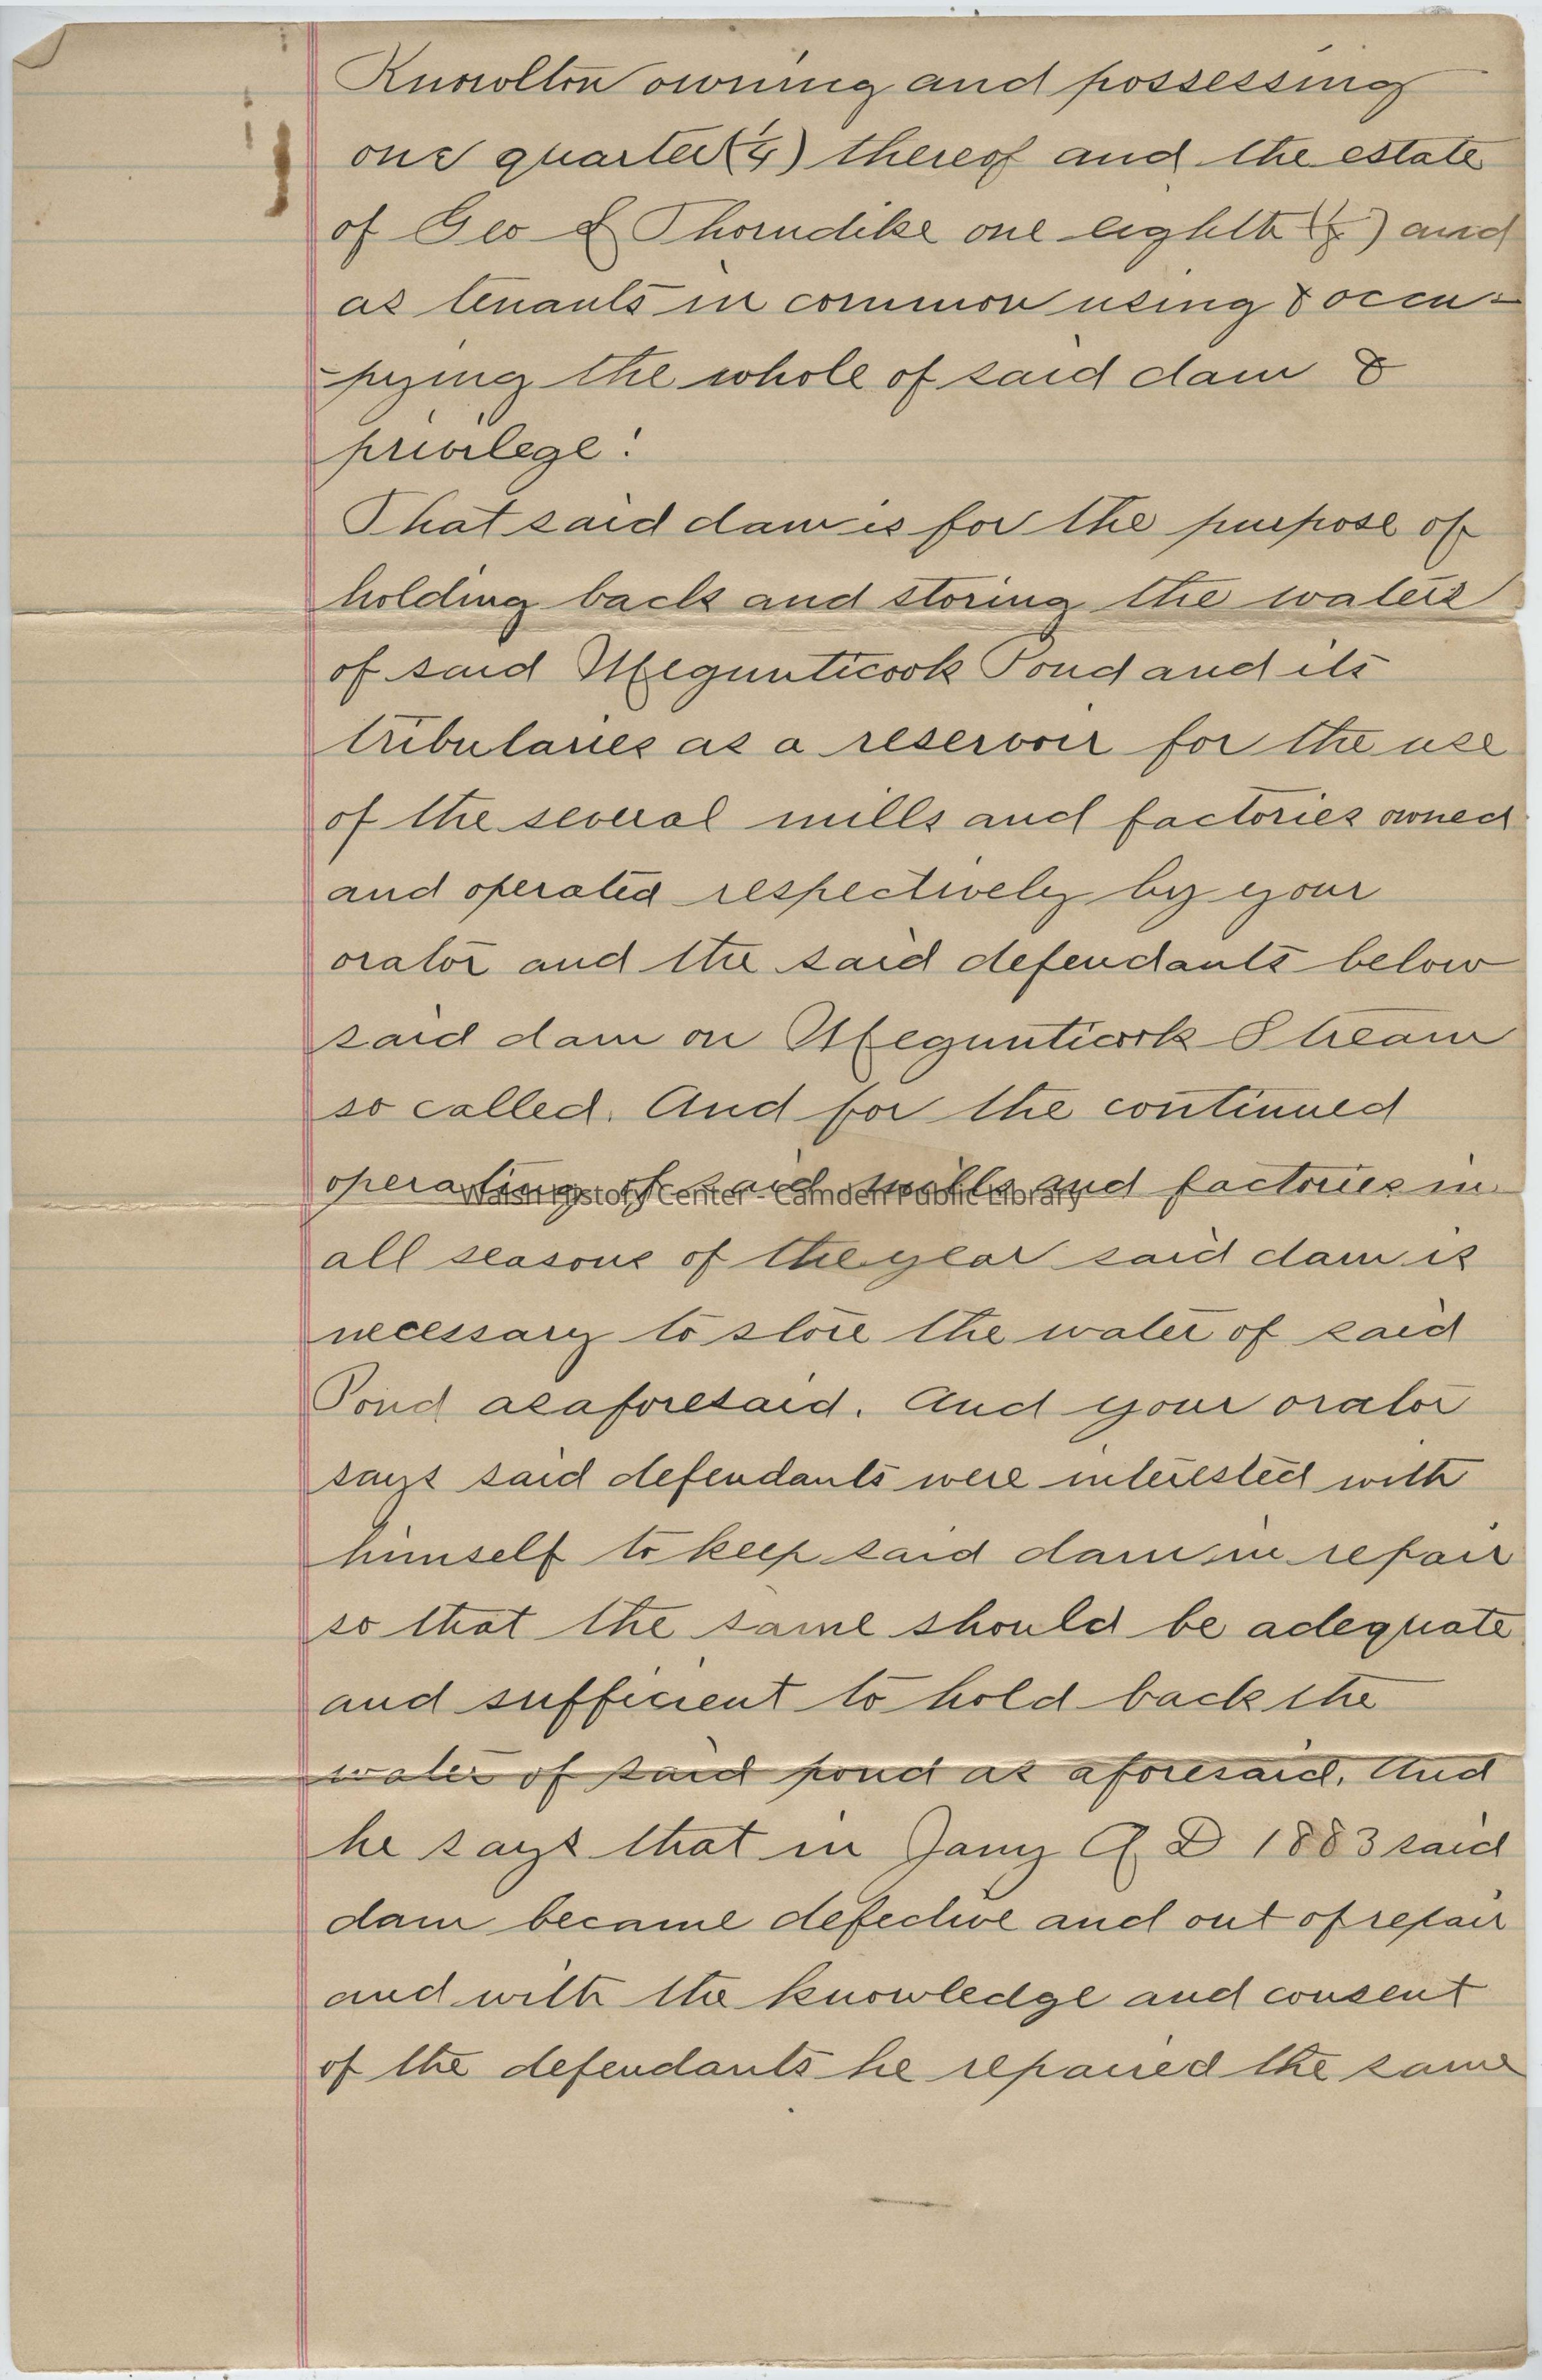 Knowlton owning and possessing
one quarter (1/4) thereof and the estate
of Geo L Thorndike one eighth (1/8) and
as tenants in common using & occu-
-pying the whole of said dam &
privilege:
That said dam is for the purpose of
holding back and storing the waters
of said Megunticook Pond and its
tributaries as a reservoir for the use
of the several mills and factories owned
and operated respectively by your
orator and the said defendants below
said dam on Megunticook Stream
so called. And for the continued
operating of said mills and factories in
Walsh History Center - Camden Public Library
all seasons of the year said dam is
necessary to store the water of said
Pond as aforesaid. And your orator
says said defendants were interested with
himself to keep said dam in repair
so that the same should be adequate
and sufficient to hold back the
water of said pond as aforesaid. And
he says that in Jany A D 1883 said
dam became defective and out of repair
and with the knowledge and consent
of the defendants he repaired the same